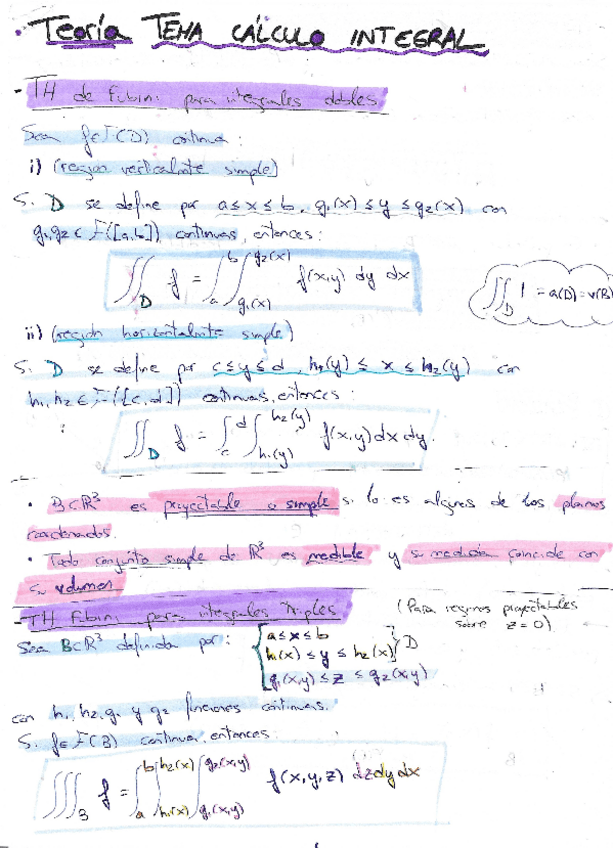 · Teoría TEMA CÁLCULO INTEGRAL
- TH de Fubini para integrales dobles
Sea f∈F(D) continua:
i) (región verticalmente simple)
Si D se define por a≤x≤b, g₁(x)≤y≤g₂(x) con
g₁,g₂∈F([a,b]) continuas, entonces:
∬_D f = ∫_a^b ∫_{g₁(x)}^{g₂(x)} f(x,y) dy dx
∬_D 1 = a(D) = v(B)
ii) (región horizontalmente simple)
Si D se define por c≤y≤d, h₁(y)≤x≤h₂(y) con
h₁,h₂∈F([c,d]) continuas, entonces:
∬_D f = ∫_c^d ∫_{h₁(y)}^{h₂(y)} f(x,y) dx dy.
· B⊂ℝ³ es proyectable o simple si lo es algunos de los planos
coordenados.
· Todo conjunto simple de ℝ³ es medible y su medición coincide con
su volumen
- TH Fubini para integrales triples (Para regiones proyectables
sobre z=0)
Sea B⊂ℝ³ definida por: { a≤x≤b
h₁(x)≤y≤h₂(x) } D
g₁(x,y)≤z≤g₂(x,y)
con h₁, h₂, g₁ y g₂ funciones continuas.
Si f∈F(B) continua, entonces:
∭_B f = ∫_a^b ∫_{h₁(x)}^{h₂(x)} ∫_{g₁(x,y)}^{g₂(x,y)} f(x,y,z) dz dy dx